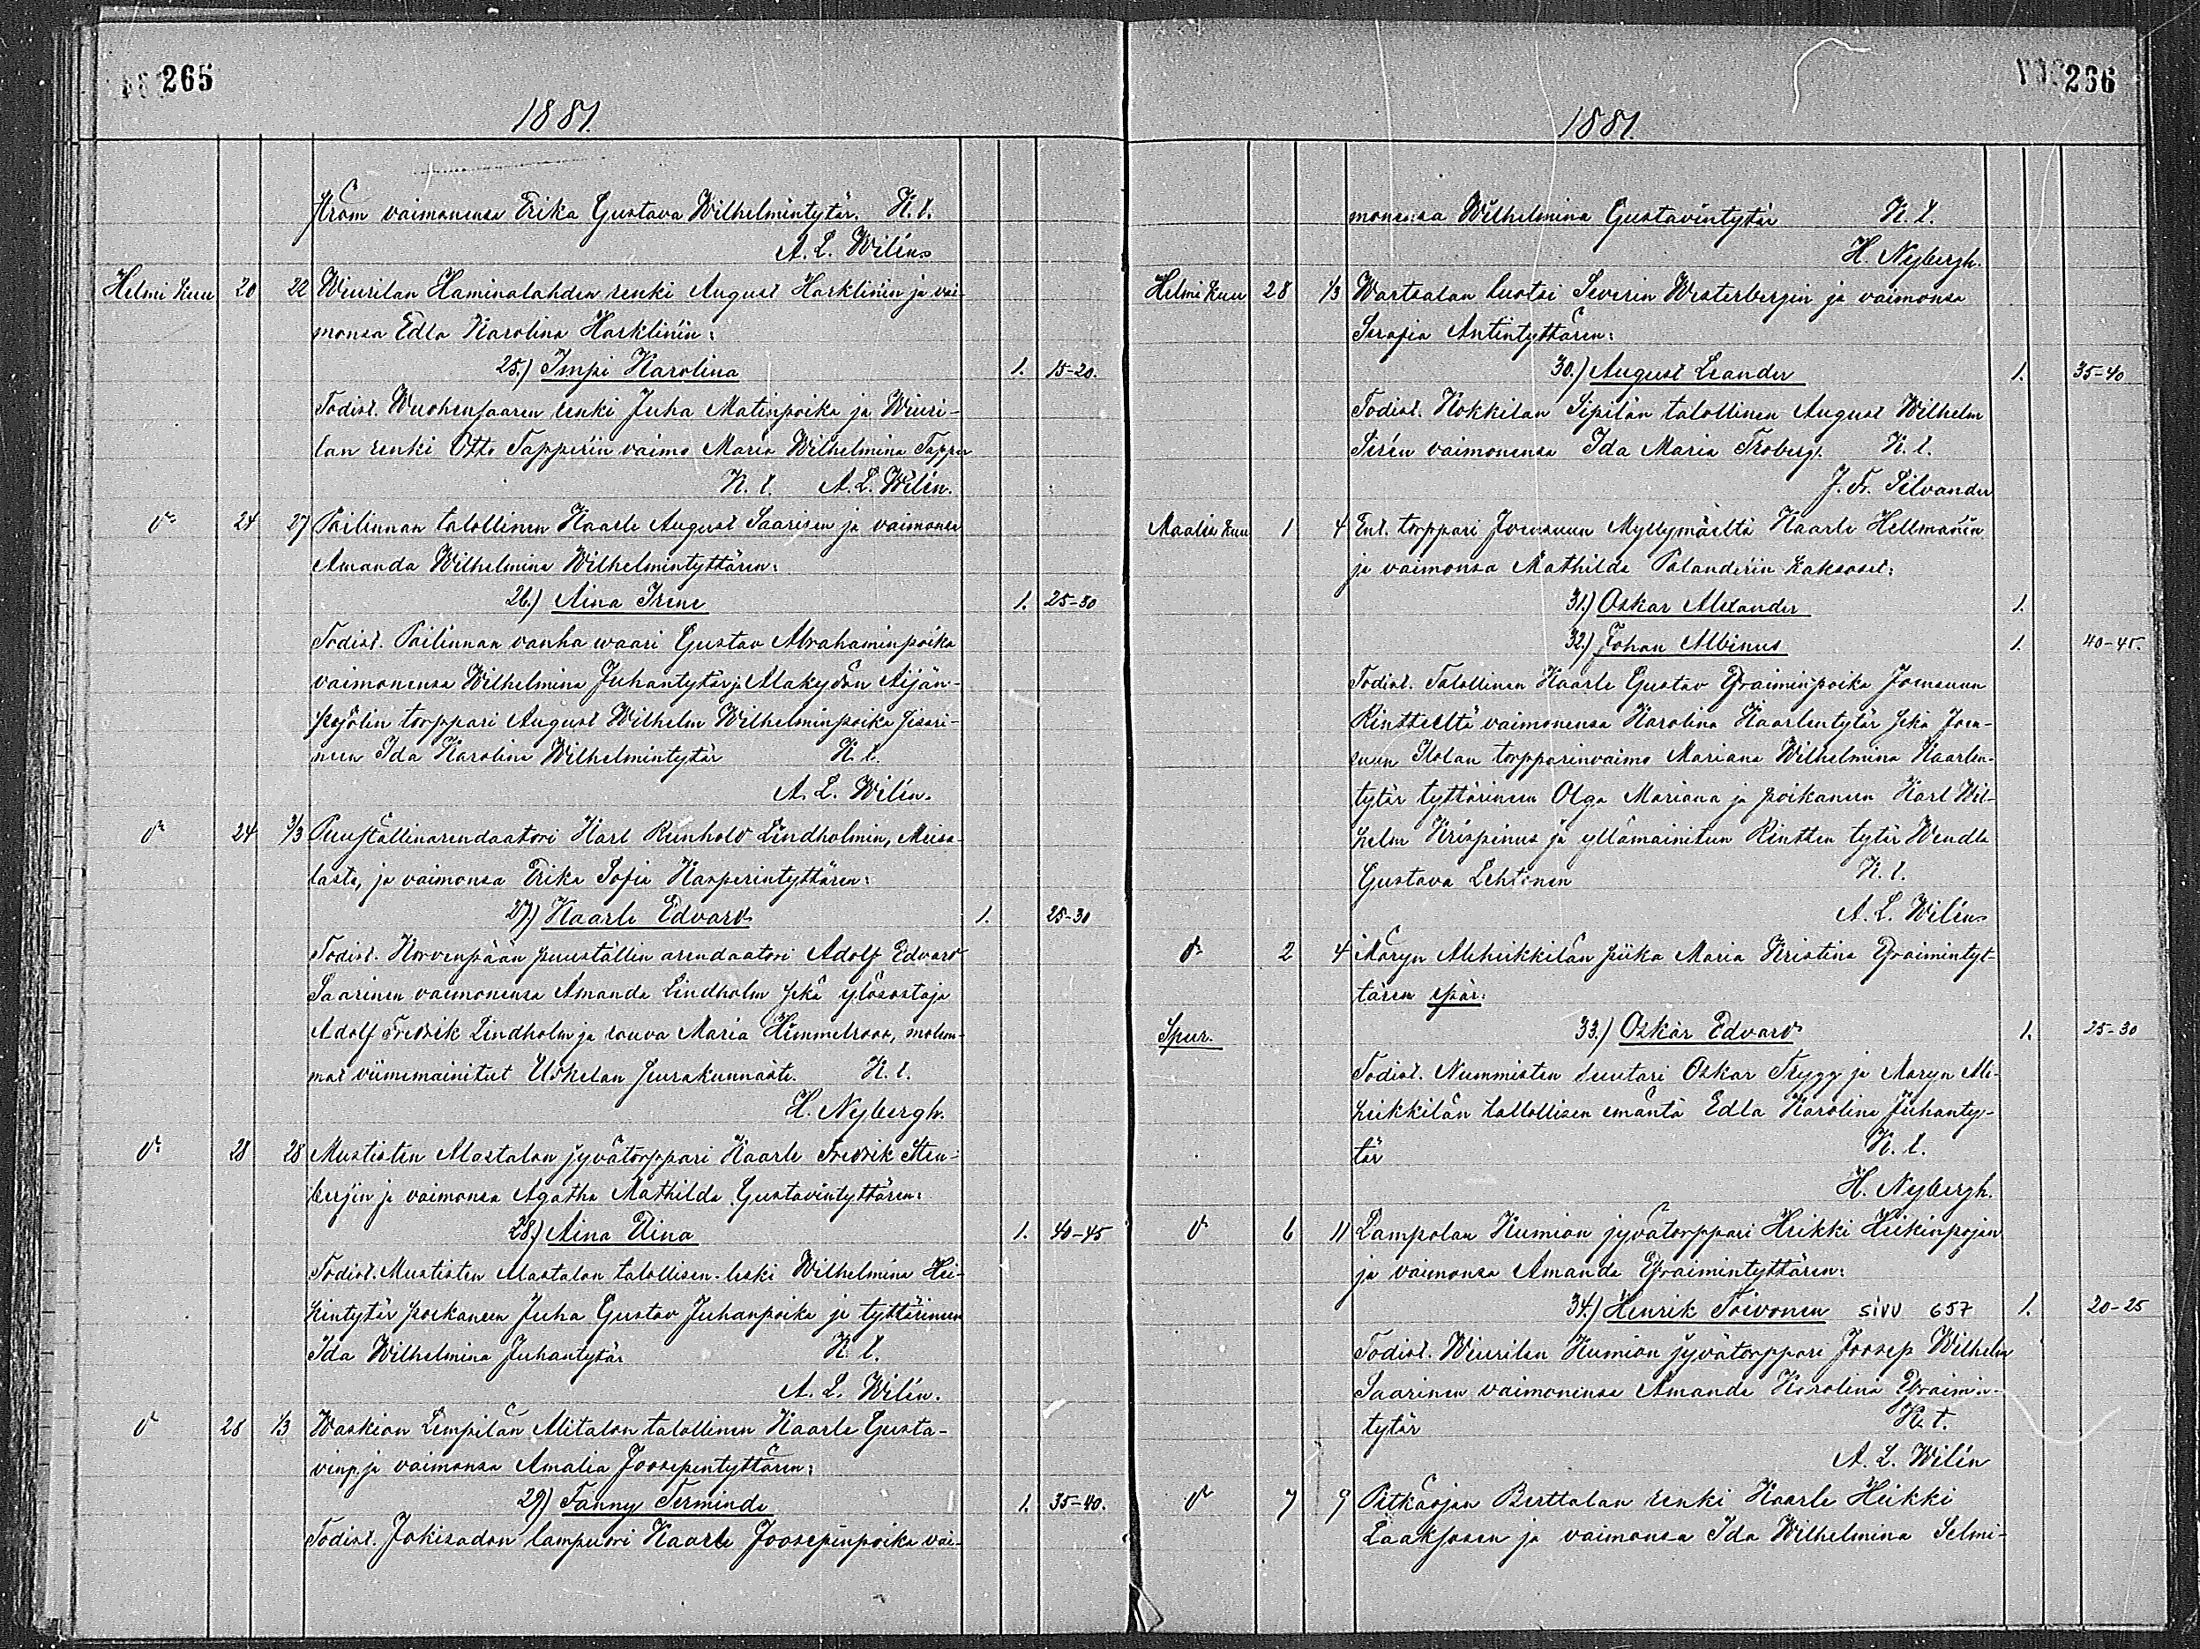 265
1881.
ström vaimonensa Erika Gustava Wilhelmintytär. K. l.
A. L. Wilén.
Helmi kuu 20 22 Wiurilan Haminalahden renki August Harklinin ja vai-
monsa Edla Karolina Harklinin:
25.) Impi Karolina 1. 15-20.
Todist. Wuohensaaren renki Juha Matinpoika ja Wiuri-
lan renki Otto Tapperin vaimo Maria Wilhelmina Tapper
K. l. A. L. Wilén.
d:o 24 27 Pailinnan talollinen Kaarle August Saarisen ja vaimonsa
Amanda Wilhelmina Wilhelmintyttären:
26.) Aina Irene 1. 25-30
Todist. Pailinnan vanha waari Gustav Abrahaminpoika
vaimonensa Wilhelmina Juhantytär ja Alakydön Äijän-
torppari August Wilhelm Wilhelminpoika sisari-
neen Ida Karolina Wilhelmintytär K. l.
A. L. Wilén.
d:o 24 3/3 Puustallinarendaatori Karl Reinhold Lindholmin, Meisa-
lasta, ja vaimonsa Erika Sofia Kasperintyttären:
27) Kaarle Edvard 1. 25-30
Todist. Korvenpään puustallin arendaatori Adolf Edvard
Saarinen vaimonensa Amanda Lindholm sekä ylösostaja
Adolf Fredrik Lindholm ja rouva Maria Himmelroos, molem-
mat viimemainitut Uskelan seurakunnasta. K. l.
H. Nybergh.
d:o 28 28 Mustisten Alastalon jyvätorppari Kaarle Fredrik Sten-
berjin ja vaimonsa Agatha Mathilda Gustavintyttären:
28.) Aina Elina 1. 40-45
Todist. Mustisten Alastalon talollisen leski Wilhelmina Hei-
kintytär poikaneen Juha Gustav Juhanpoika ja tyttärineen
Ida Wilhelmina Juhantytär K. l.
A. L. Wilén.
d:o 28 1/3 Waskion Lempilän Alitalon talollinen Kaarle Gusta-
vinp. ja vaimonsa Amalia Joosepintyttären:
29) Fanny Terminda 1. 35-40.
Todist. Jokisadon lampuori Kaarle Joosepinpoika vai-
266
1881.
monensa Wilhelmina Gustavintytär K. l.
H. Nybergh.
Helmi kuu 28 1/3 Wartsalan luotsi Severin Westerbergin ja vaimonsa
Serafia Antintyttären:
30.) August Leander 1. 35-40
Todist. Kokkilan Sipilän talollinen August Wilhelm
Sirén vaimonensa Ida Maria Froberg. K. l.
J. Fr. Silvander
Maalis kuu 1 4 Ent. torppari Joensuun Myllymäeltä Kaarle Hellmanin
ja vaimonsa Mathilda Palanderin kaksoset:
31.) Oskar Alexander 1.
32.) Johan Albinus 1. 40-45.
Todist. Talollinen Kaarle Gustav Efraiminpoika Joensuun
Rintteeltä vaimonensa Karolina Kaarlentytär sekä Joen-
suun Ilolan torpparinvaimo Mariana Wilhelmina Kaarlen-
tytär tyttärineen Olga Mariana ja poikaneen Karl Wil-
helm Krispinus ja yllämainitun Rintten tytär Wendla
Gustava Lehtonen K. l.
A. L. Wilén.
d:o 2 4 Märyn Aliheikkilän piika Maria Kristina Efraimintyt-
tären äpär.
Spur. 33.) Oskar Edvard 1. 25-30
Todist. Nummisten suutari Oskar Trygg ja Maryn Ali-
heikkilän tallollisen emäntä Edla Karolina Juhanty-
tär K. l.
H. Nybergh.
d:o 6 11 Lampolan Kumion jyvätorppari Heikki Heikinpojan
ja vaimonsa Amanda Efraimintyttären:
34) Henrik Toivonen sivu 657 1. 20-25
Todist. Wiurilan Kumion jyvätorppari Joosep Wilhelm
Saarinen vaimonensa Amanda Karolina Efraimin-
tytär K. t.
A. L. Wilén
d:o 7 9 Pitkäojan Berttalan renki Kaarle Heikki
Laaksosen ja vaimonsa Ida Wilhelmina Selmi-